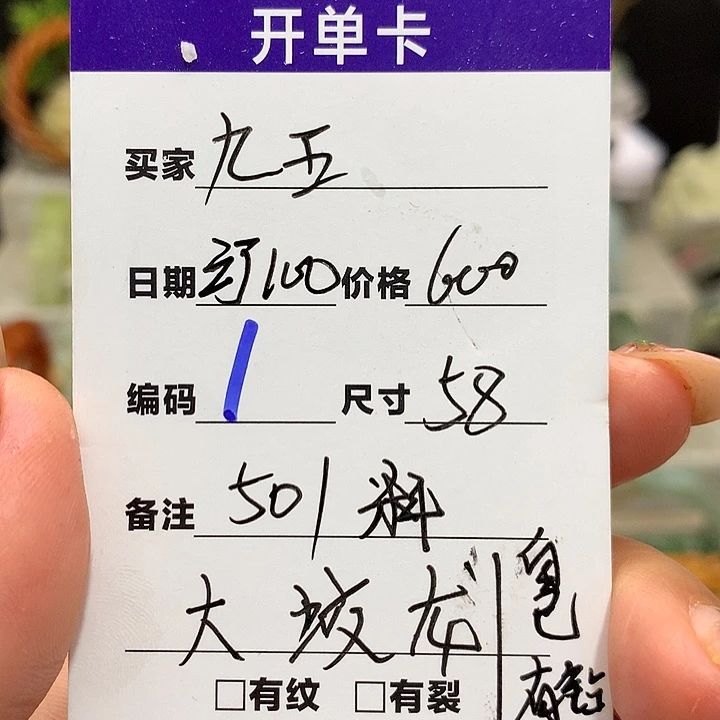 开单卡
买家 九五
日期 订100 价格 600
编码 1 尺寸 58
备注 501料
大坡龙
□有纹 □有裂
有